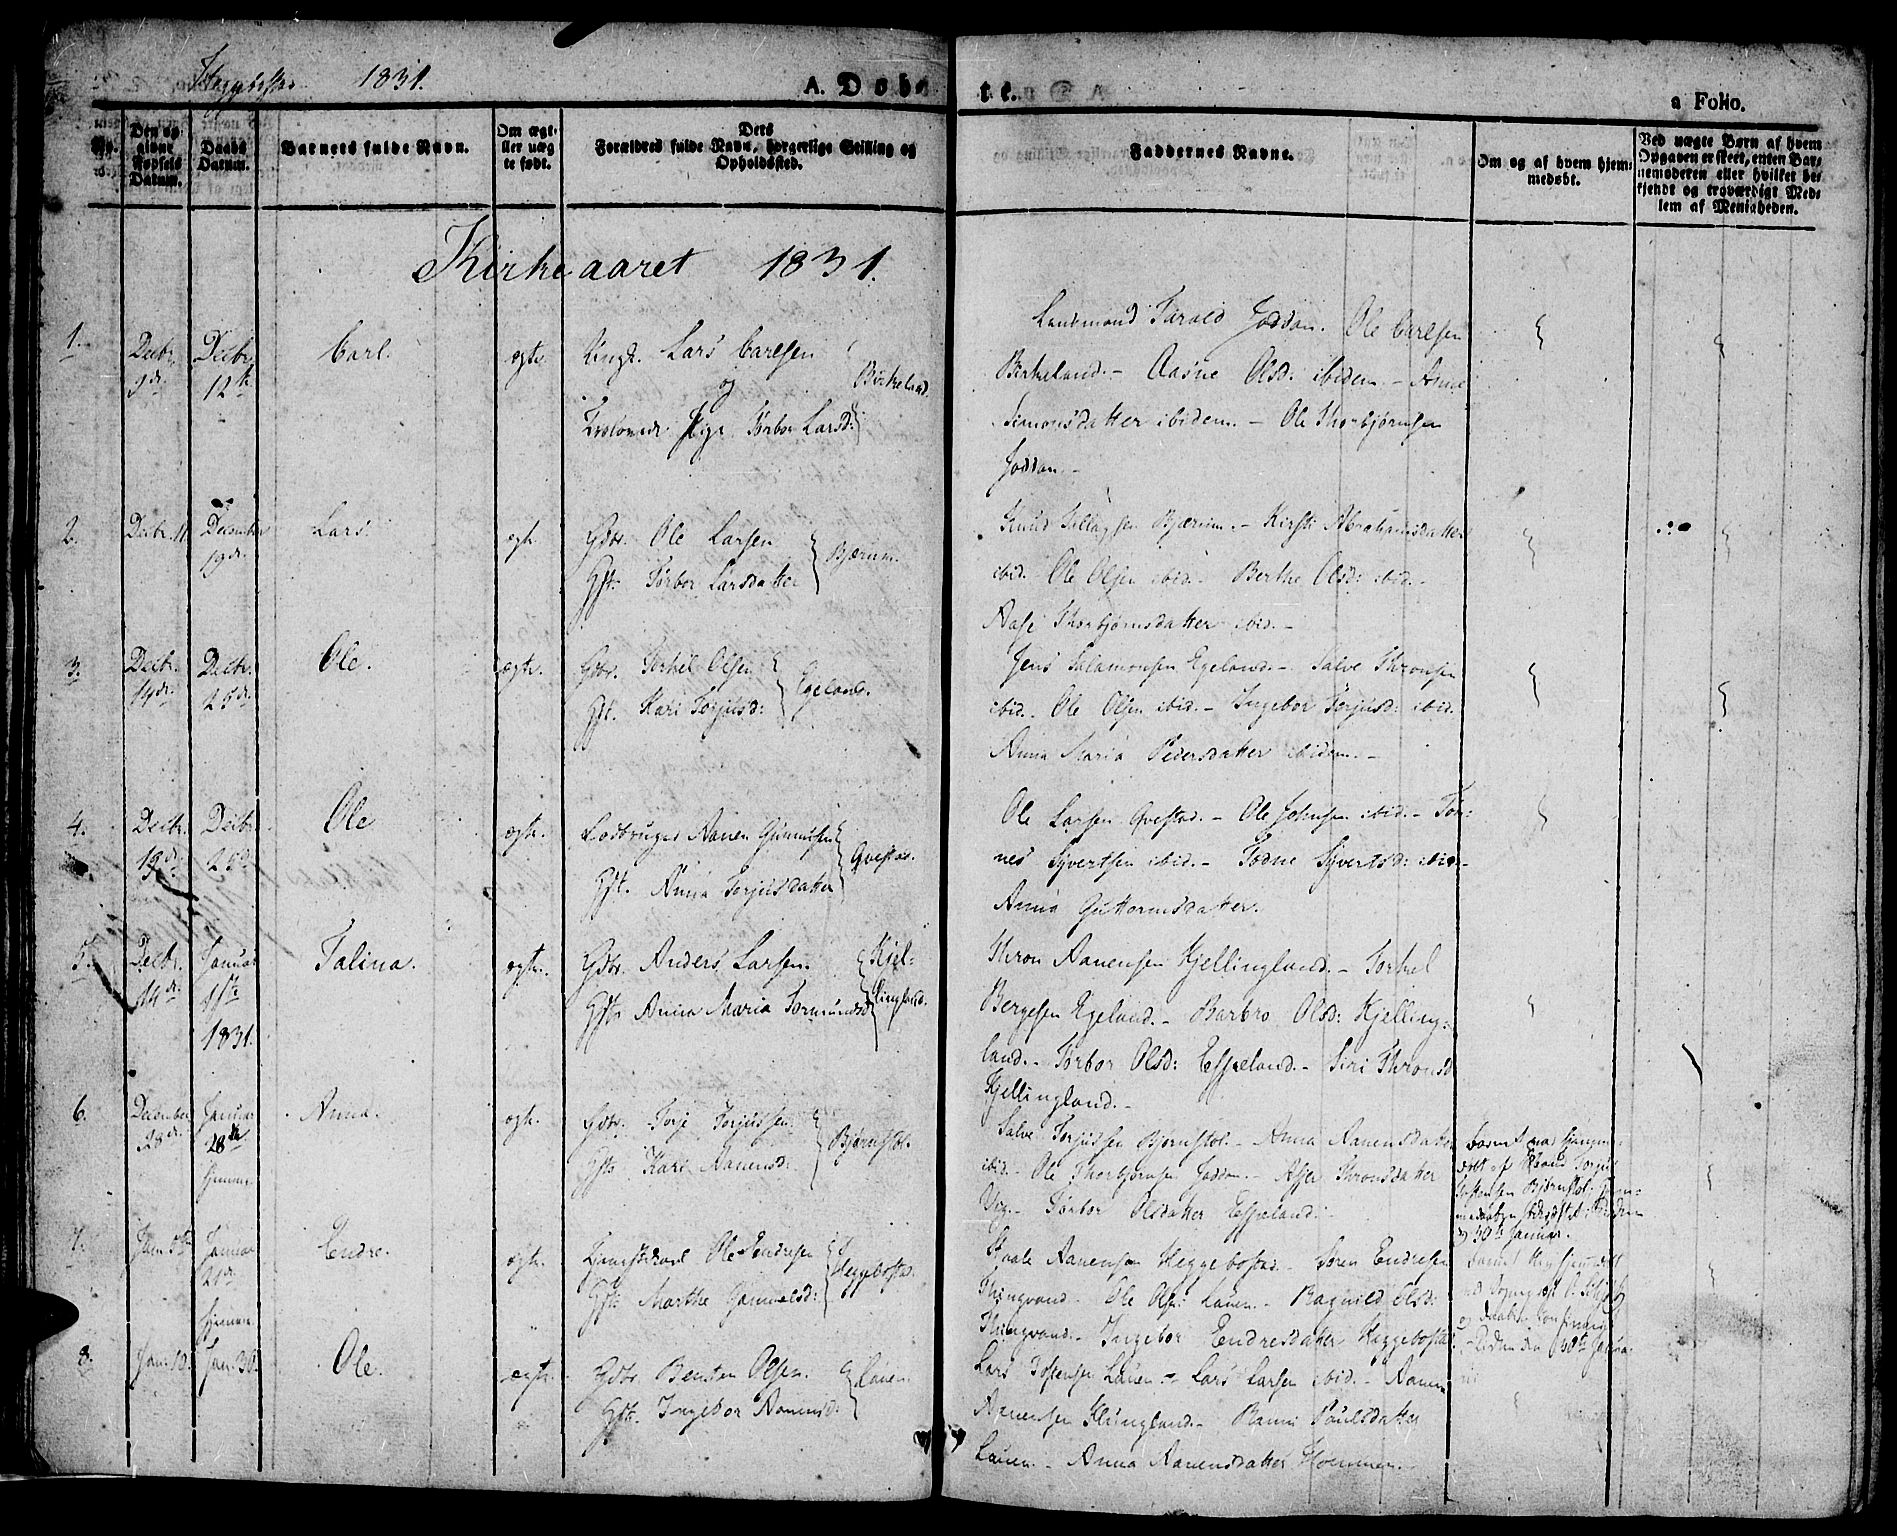 1831.
A. Døbe
te.
a Folio.
No.
Den op
givne
Fødsels
Datum.
Daabs
Datum.
Barnets fulde Navn.
Om ægt-
eller uæg
te født.
Dets
Forældres fulde Navn, borgerlige Stilling og
Opholdssted.
Faddernes Navne.
Om og af hvem hjem-
medøbt.
Ved uægte Børn af hvem
Opgaven er skeet, enten Bar-
nemoderen eller hvilket be-
kjendt og troværdigt Med-
lem af Menigheden.
Kirkeaaret 1831.
1. Decbr. 9de. Decbr. 12te Carl. ægte. Ungk. Lars Carlsen
og Birkeland.
Pige Tørbor Larsd:
Lensmand Tarald Joddan. Ole Carlsen
Birkeland. - Aasne Olsd: ibidem. - Anna
Simonsdatter ibidem. - Ole Thorbjørnsen
Joddan. -
2. Decbr. 11 December 19de. Lars. ægte. Gdbr. Ole Larsen
Hst. Tørbor Larsdatter Bjærum.
Knud Tellagsen Bjærum. - Kirsti Abrahamsdatter
ibid. Ole Olsen ibid. - Berthe Olsd: ibid. -
Aase Thorbjørnsdatter ibid. -
3. Decbr. 14de. Decbr. 25de. Ole. ægte. Gdbr. Torkel Olsen
Hst. Kari Torjusd: Egeland.
Jens Salamonsen Egeland. - Salve Thronsen
ibid. Ole Olsen ibid. - Ingebor Torjusd: ibid.
Anna Maria Pedersdatter ibidem. -
4. Decbr. 19de. Decbr. 25de Ole ægte. Lodbruger Aanen Gunnufsen
Hst. Anna Torjusdatter Qvestad.
Ole Larsen Qvestad. - Ole Johnsen ibid. - Tør-
nes Syvertsen ibid. - Todne Syvertsd: ibid. -
Anna Guttormsdatter.
5. Decbr. 14de. Januar 11te 1831. Talina. ægte. Gdbr. Anders Larsen.
Hst. Anna Maria Tormundsd Kjel-
lingland.
Thron Aanensen Kjellingland. - Torkel
Bergesen Egeland. - Barbro Olsd: Kjelling-
land. - Tørbor Olsd: Espeland. - Siri Thronsd
Kjellingland. -
6. December 28de. Januar 28de hjemme Anna. ægte. Gdbr. Torje Torjussen
Hst. Kari Aanensd: Bjørnstøl.
Salve Torjussen Bjørnstøl. - Anna Aanensdatter
ibid. - Ole Thorbjørnsen Joddan. - Asjer Thronsdatter
Tørbor Olsdatter Espeland. -
Barnet var hjemme-
døbt af
Bjørnstøl.
30te Januar.
7. Jan. Januar 21de hjemme Endre. ægte. Ole Endresen
Hst. Marthe Gammelsd: Heggebostad.
Aanensen Heggebostad. - Søren Endresen
Thingvand. Ole Olsen Lauen. - Ragnild Olsd:
Thingvand. - Ingebor Endresdatter Heggebostad
Barnet
30te Janua-
8. Jan. 10. Jan. 30. Ole. ægte. Gdbr. Benten Olsen.
Hst. Ingebor Aanensd: Lauen.
Lars Tostensen Lauen. - Lars Larsen ibid. - Aanen
Aanensen Klungland. - Ranni Paulsdatter
Lauen. - Anna Aanensdatter